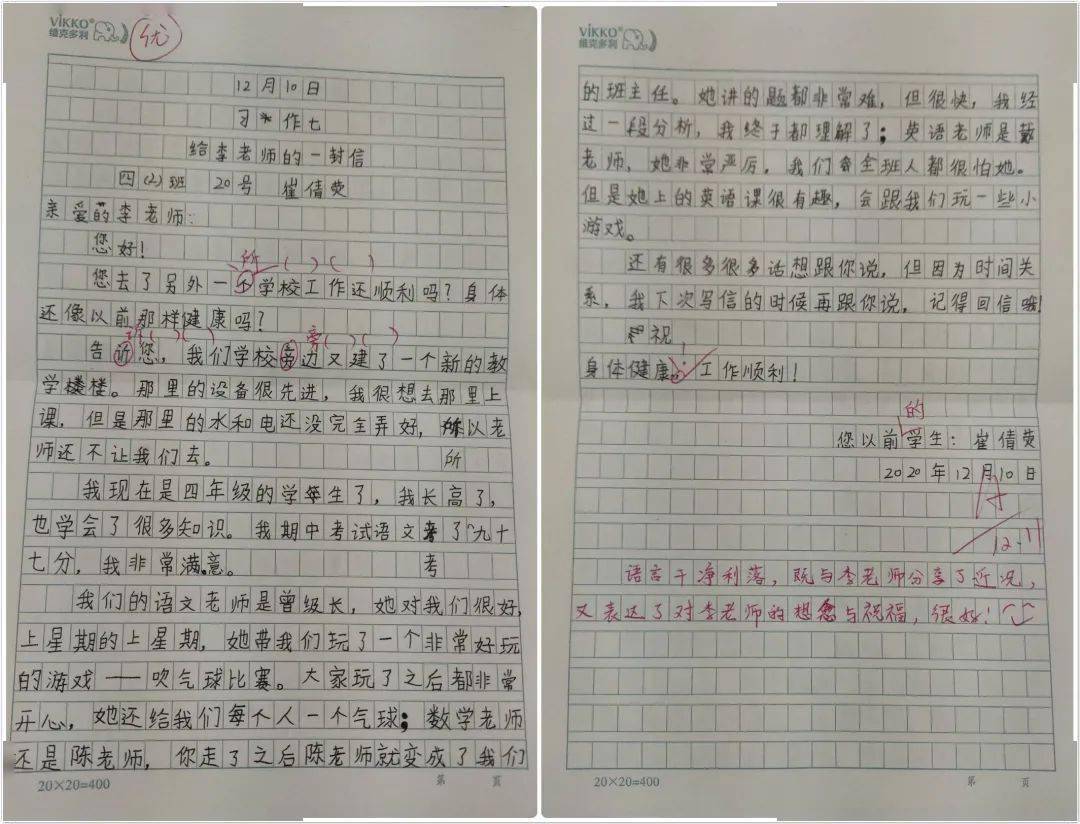 VIKKO®
维克多利
优
12月10日
习作七
给李老师的一封信
四(2)班 20号 崔倩荧
亲爱的李老师:
您好!
所 ( ) ( )
您去了另外一不学校工作还顺利吗?身体
还像以前那样健康吗?
诉( )( ) 旁( )( )
告近您,我们学校旁边又建了一个新的教
学楼。那里的设备很先进,我很想去那里上
课,但是那里的水和电还没完全弄好,所以老
师还不让我们去。 所
我现在是四年级的学生了,我长高了,
也学会了很多知识。我期中考试语文考了九十
七分,我非常满意。 考
我们的语文老师是曾级长,她对我们很好,
上星期的上星期,她带我们玩了一个非常好玩
的游戏——吹气球比赛。大家玩了之后都非常
开心,她还给我们每个人一个气球;数学老师
还是陈老师,你走了之后陈老师就变成了我们
20×20=400 第 页
VIKKO®
维克多利
的班主任。她讲的题都非常难,但很快,我经
过一段分析,我终于都理解了;英语老师是戴
老师,她非常严厉,我们全班人都很怕她。
但是她上的英语课很有趣,会跟我们玩一些小
游戏。
还有很多很多话想跟你说,但因为时间关
系,我下次写信的时候再跟你说,记得回信哦!
祝
身体健康!工作顺利!
的
您以前学生:崔倩荧
2020年12月10日
12.11
语言干净利落,既与李老师分享了近况,
又表达了对李老师的想念与祝福,很好!
20×20=400 第 页